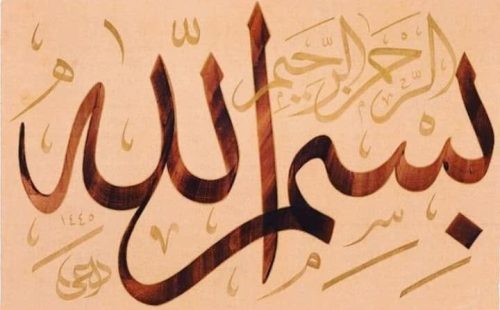 بِسْمِ اللّٰهِ
الرَّحْمٰنِ الرَّحِيْمِ
١٤٤٥